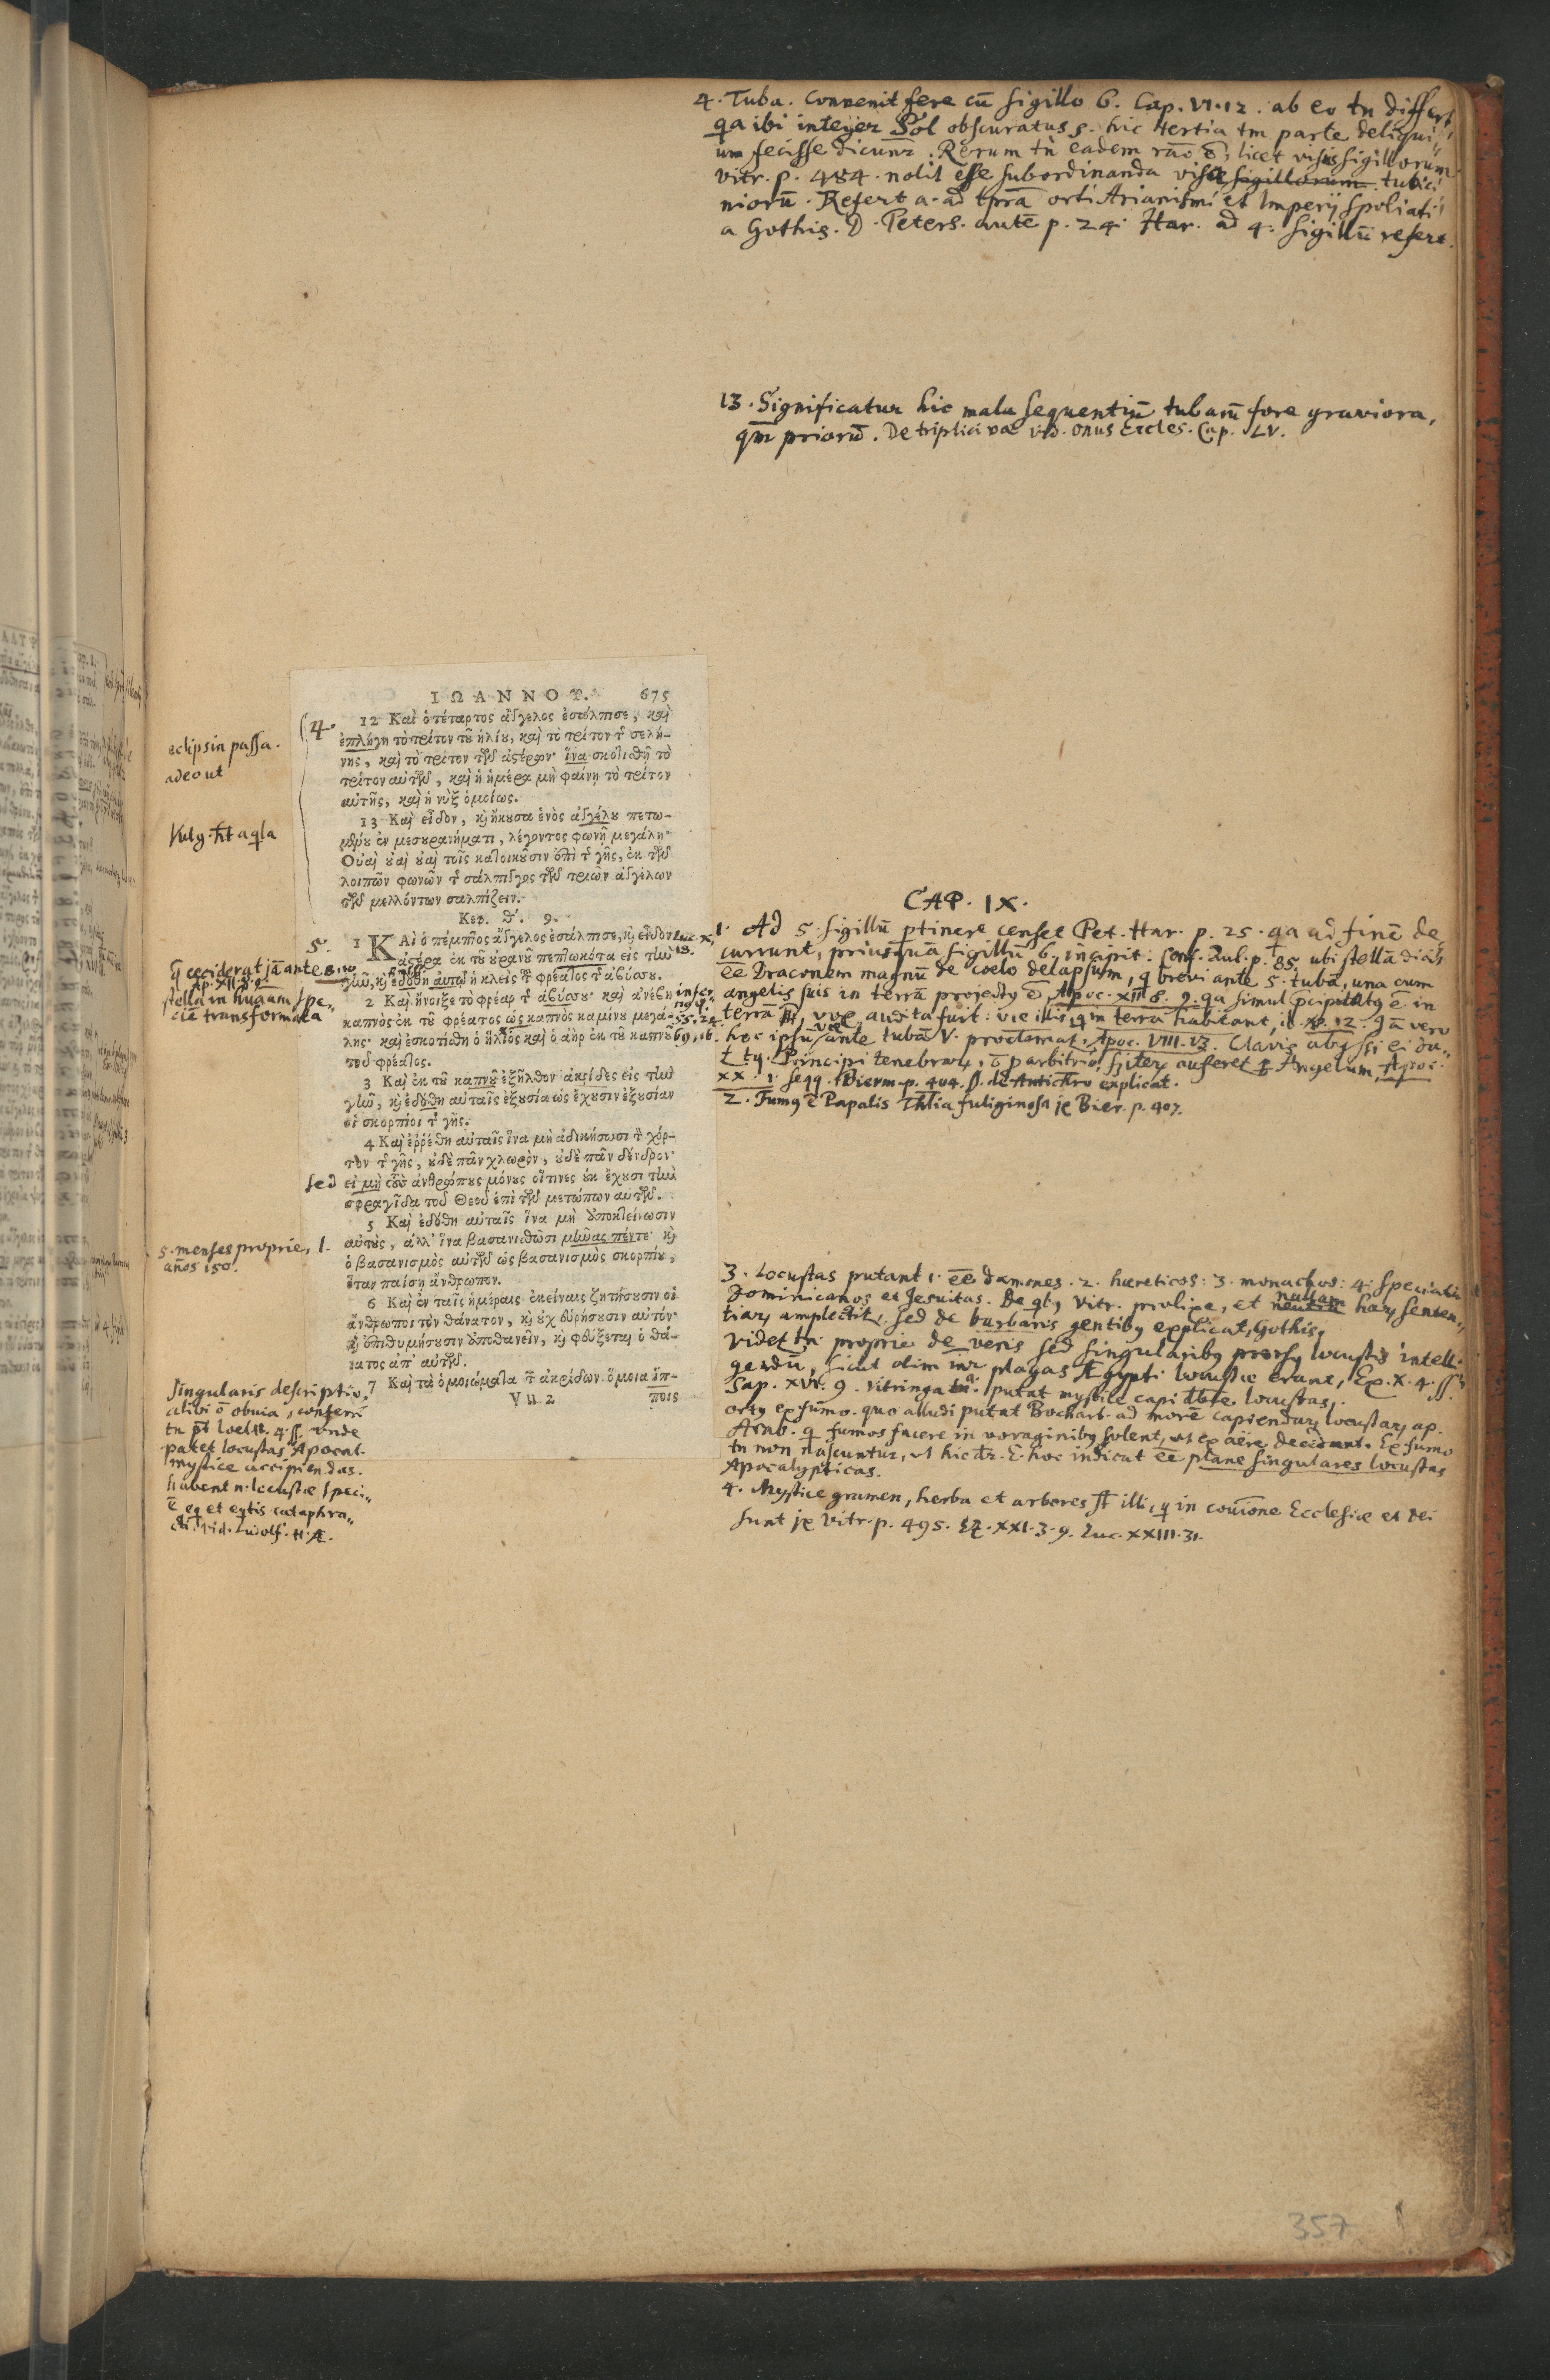 4. Tuba. Convenit fere cū sigillo 6. Cap. VI. 12. ab eo tn differt
qa ibi integer Sol obscuratus s. hic tertia tm parte deliqui„
um fecisse dicunr. Rerum tn̄ eadem rāo ē, licet visis sigillorum
vitr. p. 484. nolit esse subordinanda visa sigillorum tubici
niorū. Refert a. ad tpra orti Arianismi et Imperij spoliati
a Gothis. D. Peters. autē p. 24. Har. ad 4. sigillū refert.
13. Significatur hic mala sequentiū tubarū fore graviora,
qm priorū. De triplici vae vid. onus Eccles. Cap. LV.
ΙΩΑΝΝΟΥ. 675
(4.
12 Καὶ ὁ τέταρτος ἄγγελος ἐσάλπισε, καὶ
ἐπλήγη τὸ τρίτον τοῦ ἡλίου, καὶ τὸ τρίτον τ῀ σελή-
νης, καὶ τὸ τρίτον τῶν ἀστέρων· ἵνα σκοτισθῇ τὸ
τρίτον αὐτῶν, καὶ ἡ ἡμέρα μὴ φαίνῃ τὸ τρίτον
αὐτῆς, καὶ ἡ νὺξ ὁμοίως.
eclipsin passa.
adeout
13 Καὶ εἶδον, κὶ ἤκουσα ἑνὸς ἀγγέλου πετω-
μένου ἐν μεσουρανήματι, λέγοντος φωνῇ μεγάλῃ·
Οὐαὶ οὐαὶ οὐαὶ τοῖς κατοικοῦσιν ἐπὶ τ῀ γῆς, ἐκ τῶν
λοιπῶν φωνῶν τ῀ σάλπιγγος τῶν τριῶν ἀγγέλων
τῶν μελλόντων σαλπίζειν.
Vulg. ht aqla
Κεφ. θʹ. 9.
5.
1 ΚΑὶ ὁ πέμπτος ἄγγελος ἐσάλπισε, κὶ εἶδον
ἀστέρα ἐκ τοῦ οὐρανοῦ πεπτωκότα εἰς τὴν
γῆν, κὶ ἐδόθη αὐτῷ ἡ κλεὶς τ῀ φρέατος τ῀ ἀβύσσου.
2 Καὶ ἤνοιξε τὸ φρέαρ τ῀ ἀβύσσου· καὶ ἀνέβη
καπνὸς ἐκ τοῦ φρέατος ὡς καπνὸς καμίνου μεγά-
λης· καὶ ἐσκοτίσθη ὁ ἥλιος καὶ ὁ ἀὴρ ἐκ τοῦ καπνοῦ
τοῦ φρέατος.
3 Καὶ ἐκ τοῦ καπνοῦ ἐξῆλθον ἀκρίδες εἰς τὴν
γῆν, κὶ ἐδόθη αὐταῖς ἐξουσία ὡς ἔχουσιν ἐξουσίαν
οἱ σκορπίοι τ῀ γῆς.
4 Καὶ ἐρρέθη αὐταῖς ἵνα μὴ ἀδικήσωσι τ῀ χόρ-
τον τ῀ γῆς, οὐδὲ πᾶν χλωρὸν, οὐδὲ πᾶν δένδρον·
sed εἰ μὴ τοὺς ἀνθρώπους μόνους οἵτινες οὐκ ἔχουσι τὴν
σφραγῖδα τοῦ Θεοῦ ἐπὶ τῶν μετώπων αὐτῶν.
5 Καὶ ἐδόθη αὐταῖς ἵνα μὴ ἀποκτείνωσιν
αὐτοὺς, ἀλλ' ἵνα βασανισθῶσι μῆνας πέντε· κὶ
ὁ βασανισμὸς αὐτῶν ὡς βασανισμὸς σκορπίου,
ὅταν παίσῃ ἄνθρωπον.
6 Καὶ ἐν ταῖς ἡμέραις ἐκείναις ζητήσουσιν οἱ
ἄνθρωποι τὸν θάνατον, κὶ οὐχ εὑρήσουσιν αὐτόν·
κὶ ἐπιθυμήσουσιν ἀποθανεῖν, κὶ φεύξεται ὁ θά-
νατος ἀπ' αὐτῶν.
7 Καὶ τὰ ὁμοιώματα τ῀ ἀκρίδων ὅμοια ἵπ-
Vu 2 ποις
q ceciderat jā ante 8. 10
Ap. XII. 8. 9
stella in huam spe„
ciē transformata
Luc. X,
18.
5. menses proprie, l.
años 150.
Singularis descriptio,
alibi ō obvia, conferri
tn pt Ioel II. 4. ss. unde
patet locustas Apocal.
mystice accipiendas.
habent n. locustæ speci„
ē eq et eqtis cataphra„
cti. vid. Ludolf. H. Æ.
CAP. IX.
1. Ad 5. sigillū ptinere censet Pet. Har. p. 25. qa ad finē de
currunt, priusquā sigillū 6. incipit. Conf. p. 85. ubi stellā dicit
ēe Draconem magnū de coelo delapsum, q brevi ante 5. tubā, una cum
angelis suis in terrā projectg ē, Apoc. XII. 8. 9. qa simul pcipitatg ē in
terrā, vox audita fuit: væ illis, q in terra habitant, ib. v. 12. qā vero
hoc ipsū væ ante tubā V. proclamat, Apoc. VIII. 13. Clavis abyssi ei da„
t tq. Principi tenebrarū, auferet Angelum, Apoc.
XX. 1. seqq. Bierm. p. 404. de Antichro explicat.
2. Fumg ē Papalis Thlia fuliginosa je Bier. p. 407.
3. Locustas putant 1. ēe dæmones. 2. hæreticos: 3. monachos: 4. speciatim
Dominicanos et Jesuitas. De qbg Vitr. prolixe, et nullam harū senten„
tiarū amplectit, sed de barbaris gentibg explicat, Gothis,
Videt tn proprie de veris sed singularibg prorsg locustis intelli„
gendū, sicut olim inr plagas Ægypti locustæ erant, Ex. X. 4. ss.
Sap. XVI. 9. Vitringa putat mystice capi dbre locustas,
ortg ex fumo. quo alludi putat Bochart. ad morē capiendarū locustarū ap.
Arab. q fumos facere in voraginibg solent, ut ex aëre decidant. Ex fumo
tn non nascuntur, ut hic dr. E. hoc indicat ēe plane singulares locustas
Apocalypticas.
4. Mystice gramen, herba et arbores st illi, q in couīone Ecclesiæ et Dei
sunt je Vitr. p. 495. Ez. XXI. 3. 9. Luc. XXIII. 31.
357